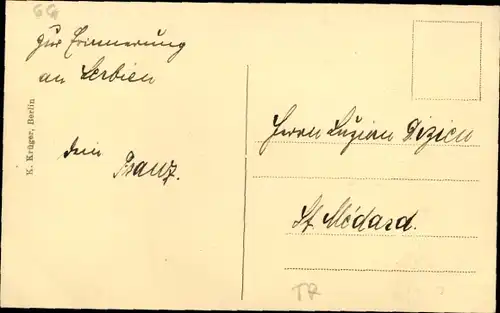 GG
zur Erinnerung
an Serbien
dein Franz.
K. Krüger, Berlin
Herrn Luzian Dizien
St. Médard.
TR